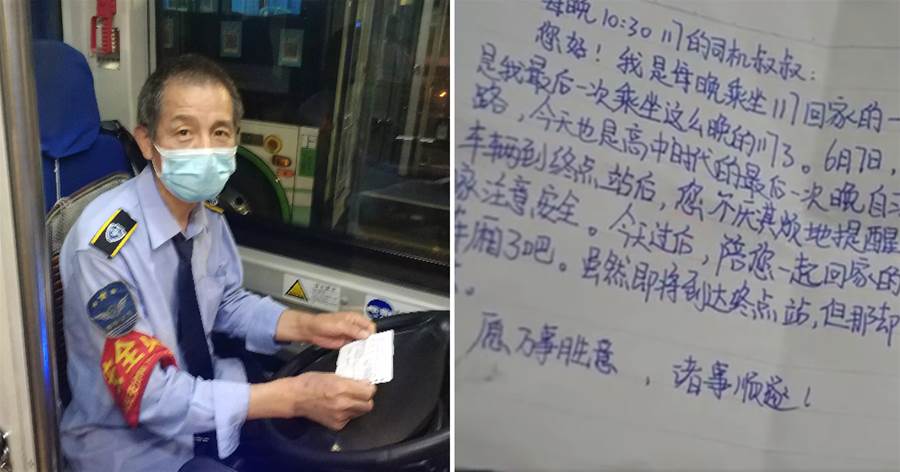 安全
每晚10:30 117的司机叔叔:
您好!我是每晚乘坐117回家的一
是我最后一次乘坐这么晚的117了。6月7日,
路,今天也是高中时代的最后一次晚自习
车辆到终点站后,您不厌其烦地提醒
家注意安全。今天过后,陪您一起回家的
车厢了吧。虽然即将到达终点站,但那却
。
愿万事胜意,诸事顺遂!